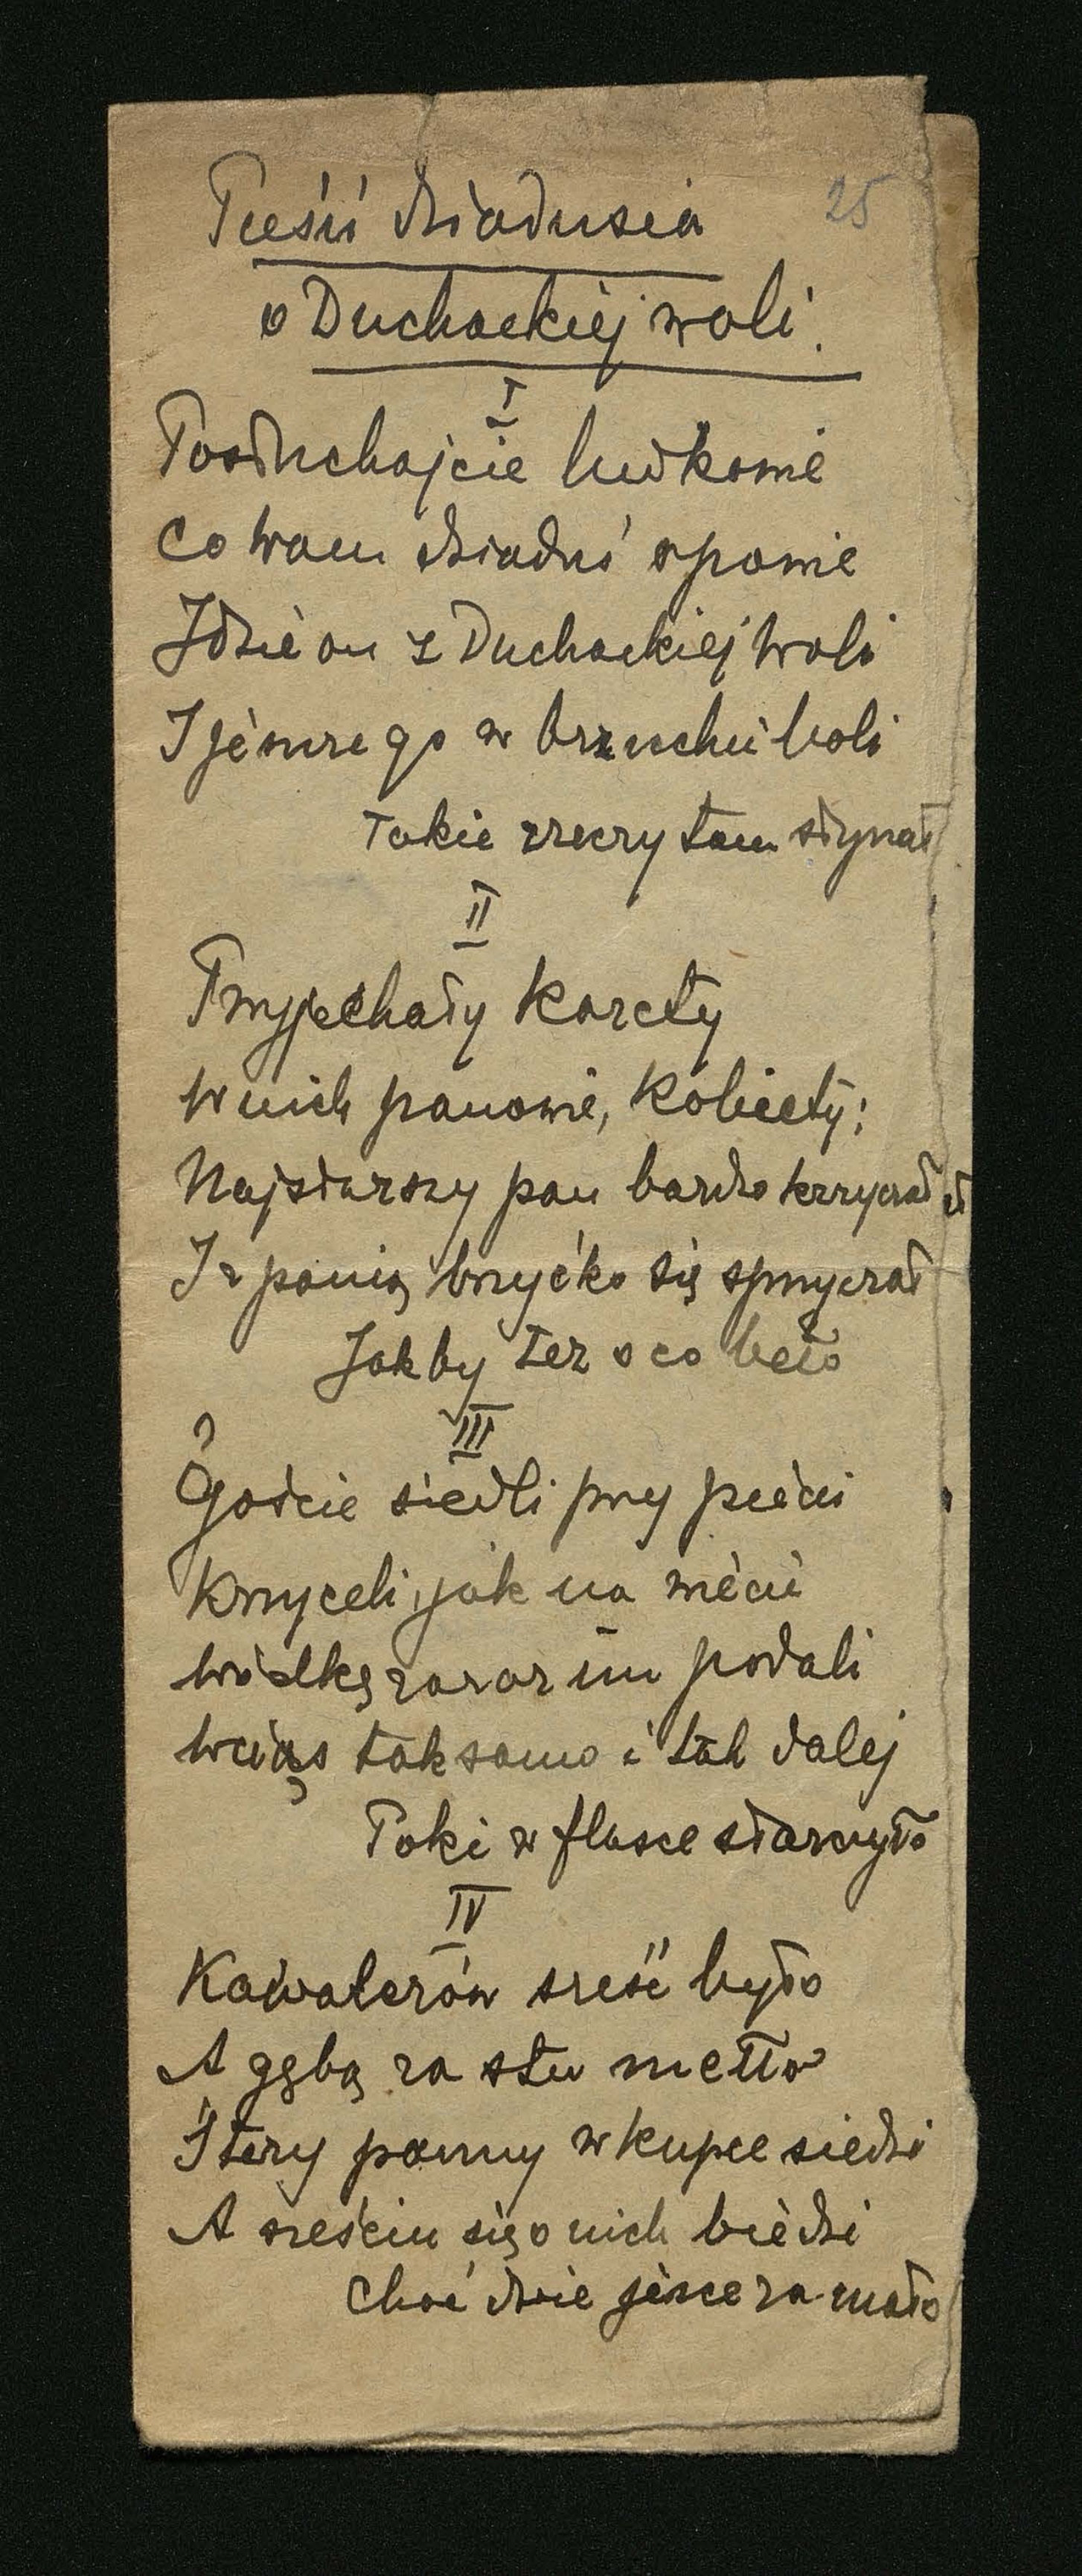 Pieśń dziadusia
25
o Duchackiej woli.
I
Posłuchajcie ludkowie
Co wam dziaduś opowie
Idzie on z Duchackiej Woli
I jesce go w brzuchu boli
Takie zrecy tam słynął
II
Przyjechały karety
W nich panowie, kobiety;
Najstarszy pan bardzo krzyczał
I z panią brzyćko się sprzyczał
Jakby też o co beło
III
Goście siedli przy piecu
Krzyceli, jak na wiecu
Wódkę zaraz im podali
Wciąs tak samo i tak dalej
Poki w flasce starczyło
IV
Kawalerów sześć było
A gębą za stu mełło
Śtery panny w kupce siedzi
A sześciu się o nich biedzi
Choć dwie jesce za mało